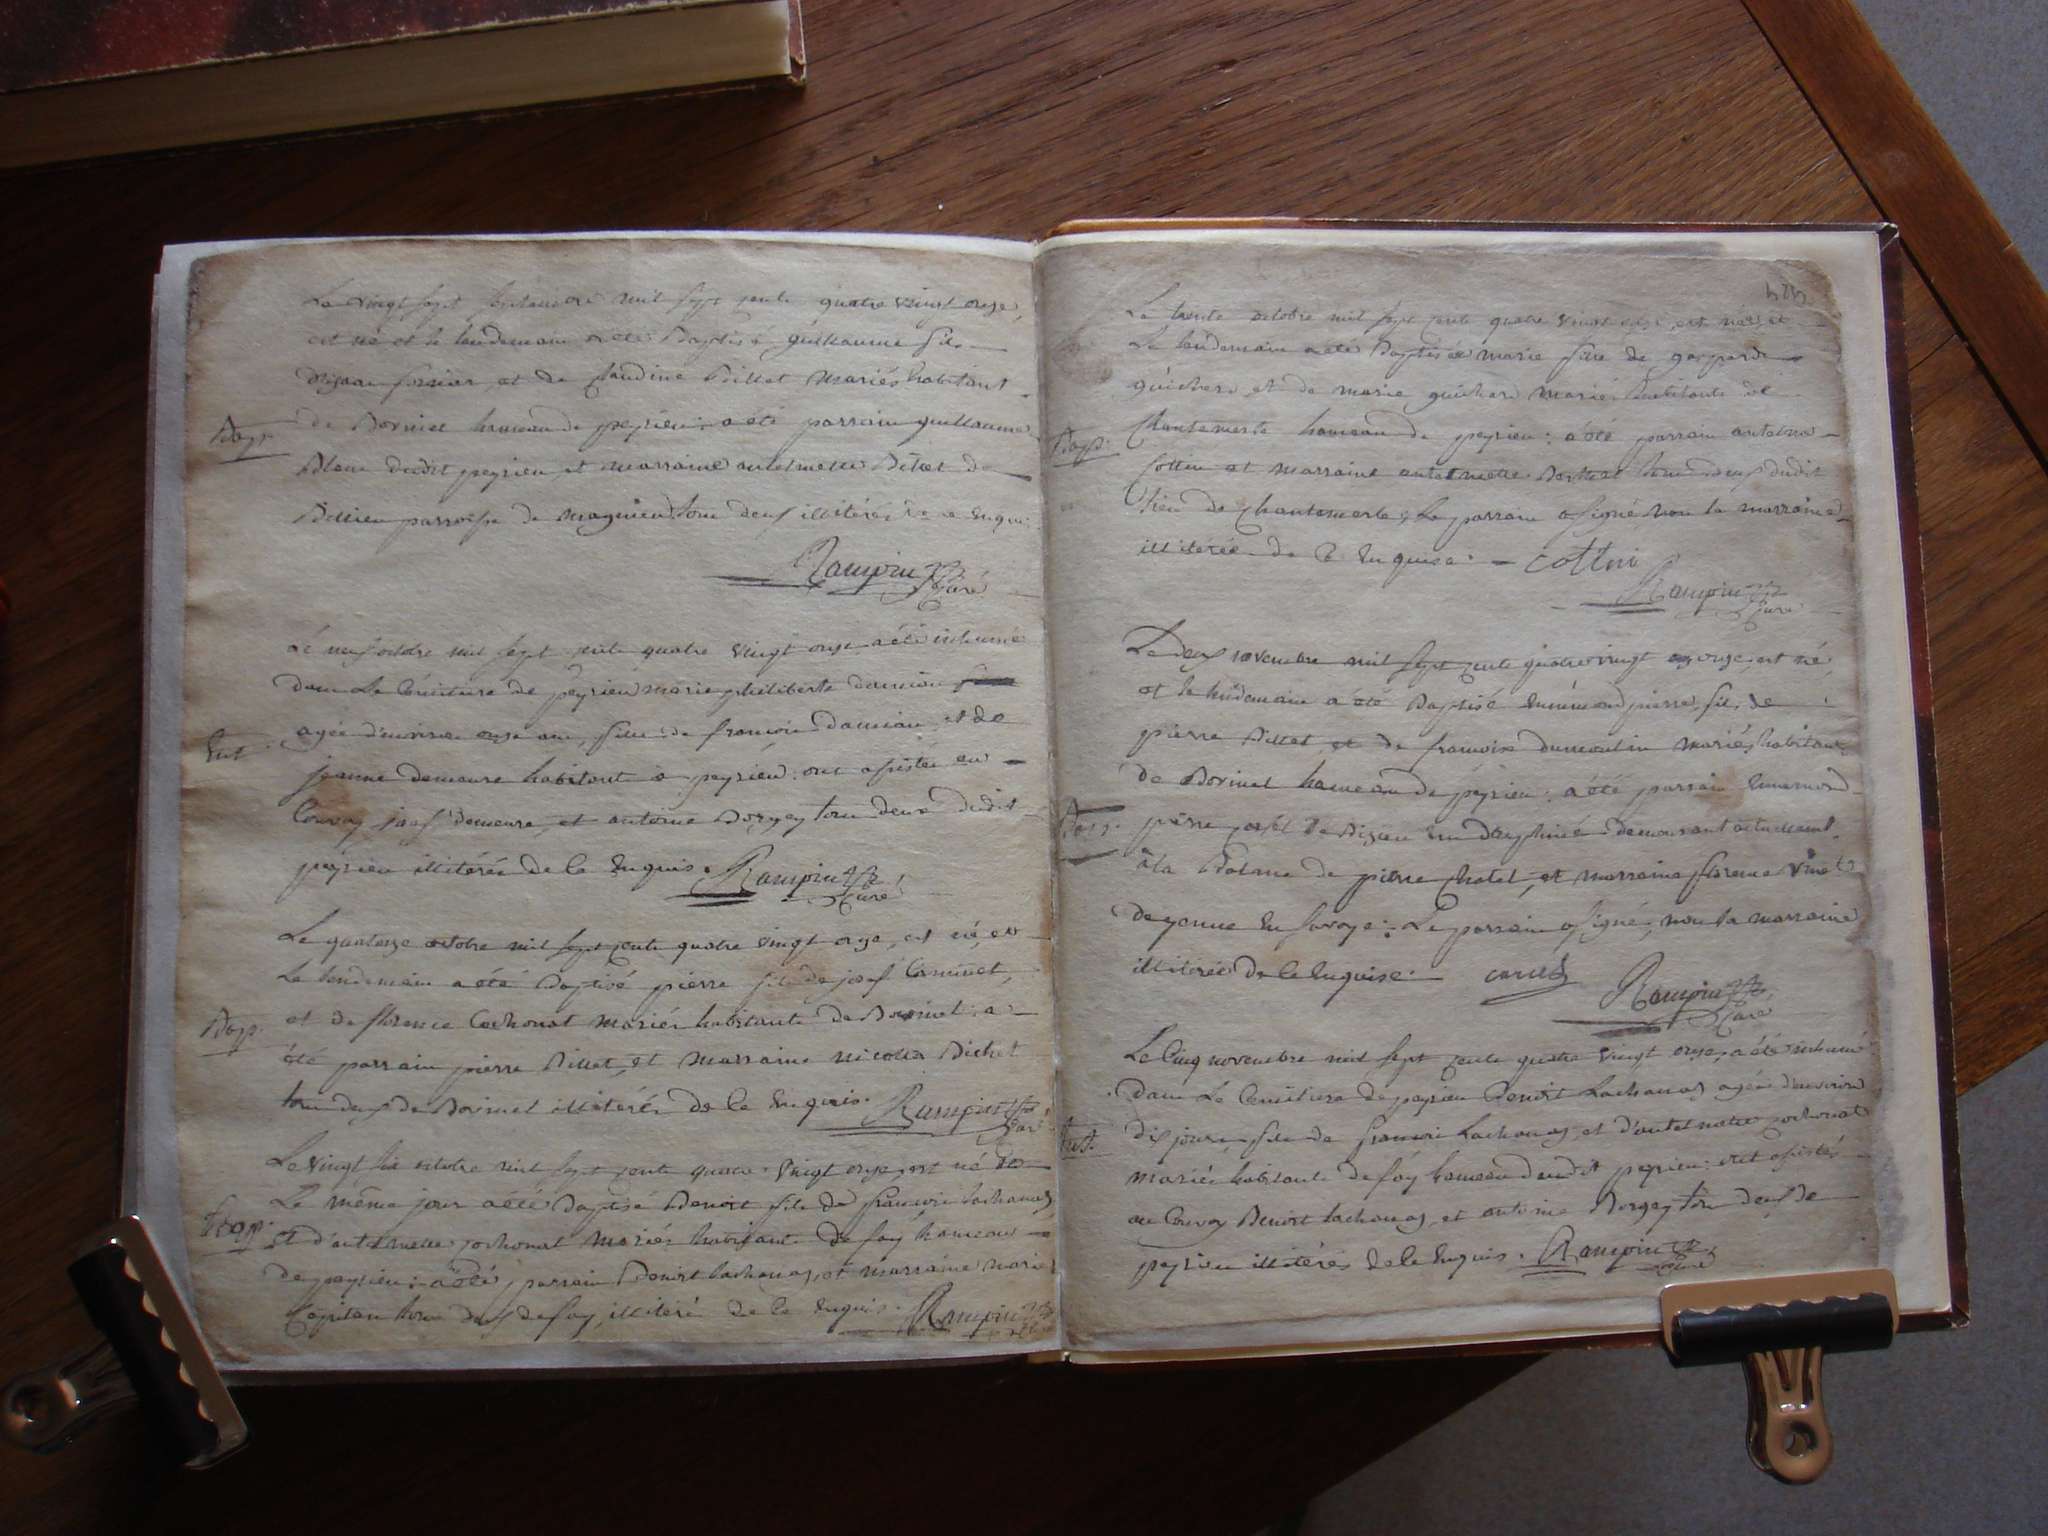 Le vingt sept septembre mil sept cents quatre vingt onze
est né et le lendemain a été baptisé guillaume fils
et de claudine Billet mariés habitant
Bap.
de Borinet hameau de peyrieu : a été parrain guillaume
Blanc dudit peyrieu et marraine antelmette Billet de
parroisse de magnieu tous deux illitérés de ce enquis
Rampin Curé
Le neuf octobre mil sept cents quatre vingt onze a été inhumé
dans Le Cimitiere de peyrieu marie philiberte damian
agée d'environ onze ans, fille de francois damian et de
Ent.
jeanne demeure habitant a peyrieu : ont assistés au
Convoy josef demeure, et antoine Borgey tous deux dudit
peyrieu illitérés de ce enquis. Rampin Curé
Le quatorze octobre mil sept cents quatre vingt onze, est né, et
Le lendemain a été baptisé pierre fils de josef Caminet,
Bap.
et de florence Cochonat mariés habitants de Borinet : a
été parrain pierre Billet, et marraine nicolas Bichet
tous deux de Borinet illitérés de ce enquis. Rampin Curé
Le vingt six octobre mil sept cents quatre vingt onze est né et
Le même jour a été baptisé Benoit fils de francois Lachanas
Bap.
et d'antelmette cochonat mariés habitants de foy hameau
de peyrieu : a été parrain Benoit Lachanas, et marraine marie
Capitan tous deux de foy, illitéré de ce enquis. Rampin
424
Le trente octobre mil sept cents quatre vingt onze, est née, et
Le lendemain a été baptisée marie fille de gaspard
guichard, et de marie guichard mariés habitants de
Bap.
Chantemerle hameau de peyrieu : a été parrain antelme
Cottin et marraine antelmette tous deux dudit
lieu de Chantemerle, Le parrain a signé non la marraine
illitérée de ce enquise. cottin
Rampin Curé
Le deux novembre mil sept cents quatre vingt onze, est né,
et le lendemain a été baptisé Ennemond pierre, fils de
pierre Billet, et de francoise dumoulin mariés, habitants
de Borinet hameau de peyrieu : a été parrain Ennemond
Bap.
pierre de en dauphiné demeurant actuelement
à la Balme de pierre Chatel, et marraine florence Vinet
de yenne en savoye : Le parrain a signé, non la marraine
illitérée de ce enquise.
Rampin Curé
Le Cinq novembre mil sept cents quatre vingt onze, a été inhumé
dans Le Cimitiere de peyrieu Benoit Lachanas agé d'environ
Ent.
dix jours, fils de francois Lachanas, et d'antelmette cochonat
mariés habitants de foy hameau dudit peyrieu : ont assistés
au Convoy Benoit Lachanas, et antoine Borgey tous deux de
peyrieu illitérés de ce enquis. Rampin Curé